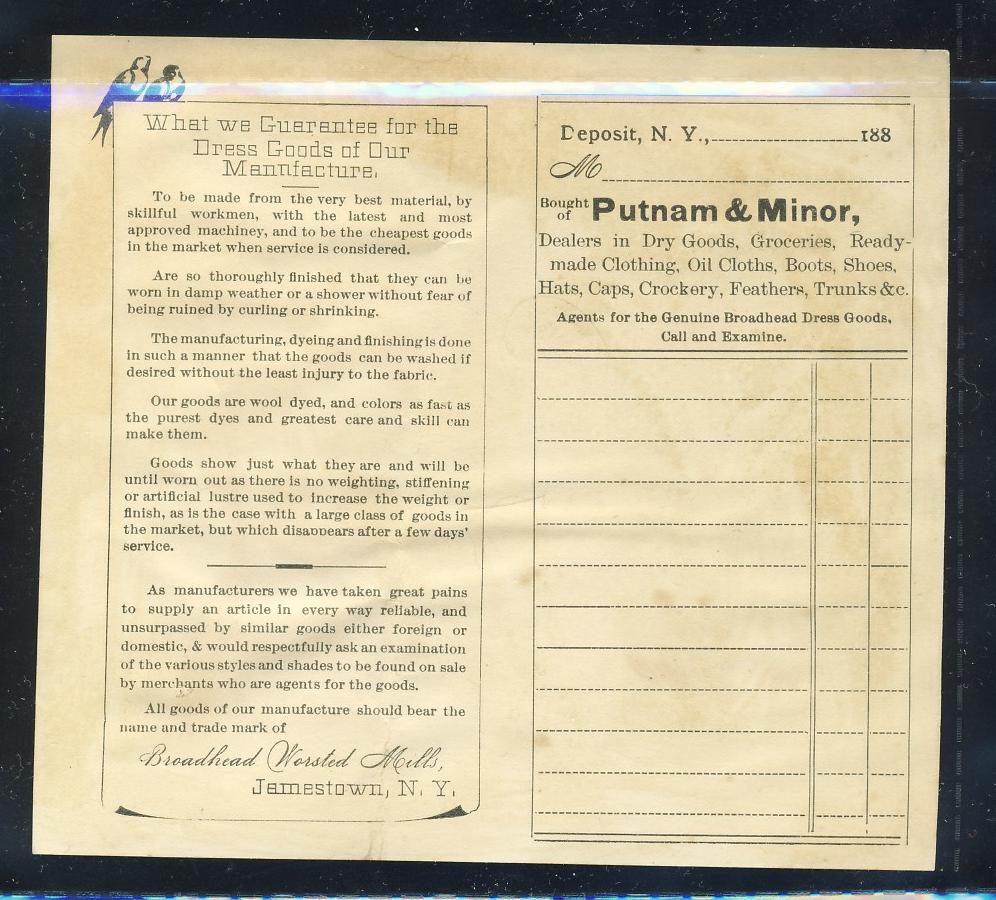 What we Guarantee for the
Dress Goods of Our
Manufacture,
To be made from the very best material, by
skillful workmen, with the latest and most
approved machiney, and to be the cheapest goods
in the market when service is considered.
Are so thoroughly finished that they can be
worn in damp weather or a shower without fear of
being ruined by curling or shrinking.
The manufacturing, dyeing and finishing is done
in such a manner that the goods can be washed if
desired without the least injury to the fabric.
Our goods are wool dyed, and colors as fast as
the purest dyes and greatest care and skill can
make them.
Goods show just what they are and will be
until worn out as there is no weighting, stiffening
or artificial lustre used to increase the weight or
finish, as is the case with a large class of goods in
the market, but which disappears after a few days'
service.
As manufacturers we have taken great pains
to supply an article in every way reliable, and
unsurpassed by similar goods either foreign or
domestic, & would respectfully ask an examination
of the various styles and shades to be found on sale
by merchants who are agents for the goods.
All goods of our manufacture should bear the
name and trade mark of
Broadhead Worsted Mills,
Jamestown, N. Y.
Deposit, N. Y., 188
M
Bought of Putnam & Minor,
Dealers in Dry Goods, Groceries, Ready-
made Clothing, Oil Cloths, Boots, Shoes,
Hats, Caps, Crockery, Feathers, Trunks &c.
Agents for the Genuine Broadhead Dress Goods,
Call and Examine.